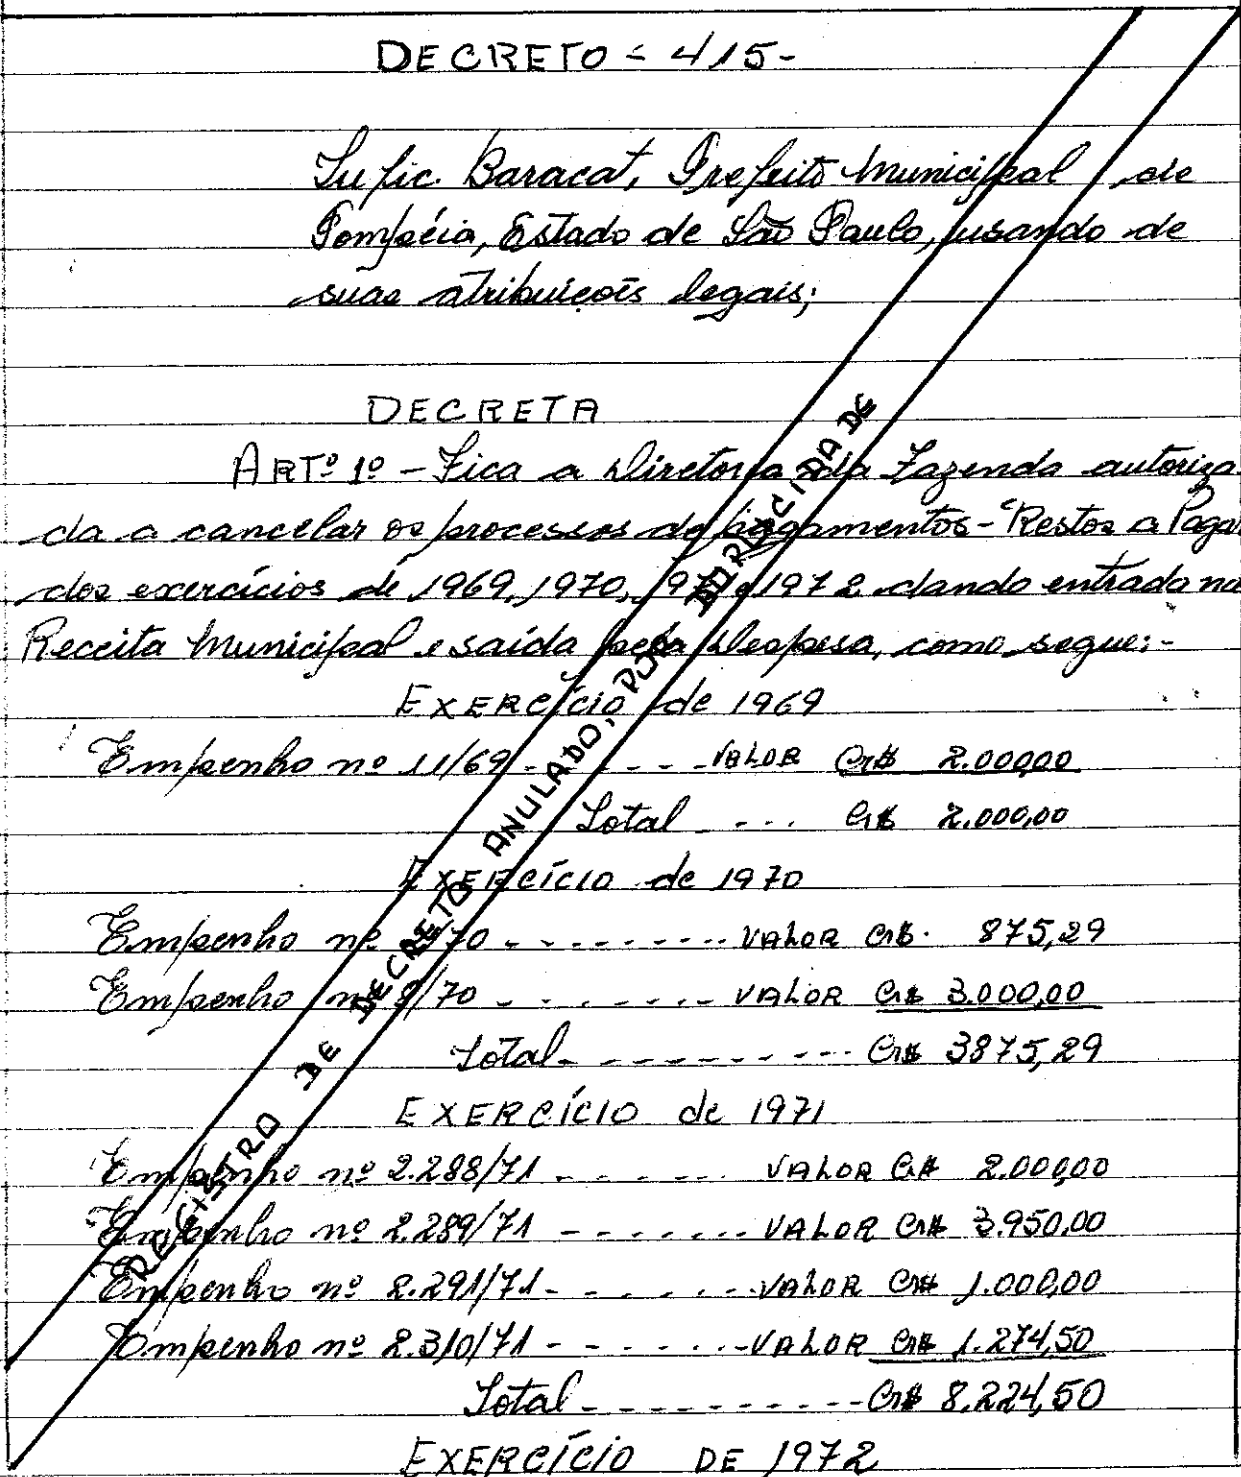 DECRETO = 415-
Tufic. Baracat, Prefeito Municipal de
Pompéia, Estado de São Paulo, usando de
suas atribuições legais;
DECRETA
ARTº 1º - Fica a Diretoria da Fazenda autoriza
da a cancelar os processos de pagamentos - "Restos a Pagar
dos exercícios de 1969, 1970, 1971 e 1972 dando entrada na
Receita Municipal e saída pela Despesa, como segue:-
EXERCÍCIO de 1969
Empenho nº 11/69 - - - - VALOR Cr$ 2.000,00
Total - - - . Cr$ 2.000,00
EXERCÍCIO de 1970
Empenho nº /70 - - - - - - - - VALOR Cr$. 875,29
Empenho nº 9/70 - - - - - - - VALOR Cr$ 3.000,00
Total - - - - - - - - - - Cr$ 3875,29
EXERCÍCIO de 1971
Empenho nº 2.288/71 - - - - - - VALOR Cr$ 2.000,00
Empenho nº 2.289/71 - - - - - - - VALOR Cr$ 3.950,00
Empenho nº 2.291/71 - - - - - - - VALOR Cr$ 1.000,00
Empenho nº 2.310/71 - - - - - - - VALOR Cr$ 1.274,50
Total - - - - - - - - - - Cr$ 8.224,50
EXERCÍCIO DE 1972
REGISTRO DE DECRETO ANULADO, POR DUPLICIDADE